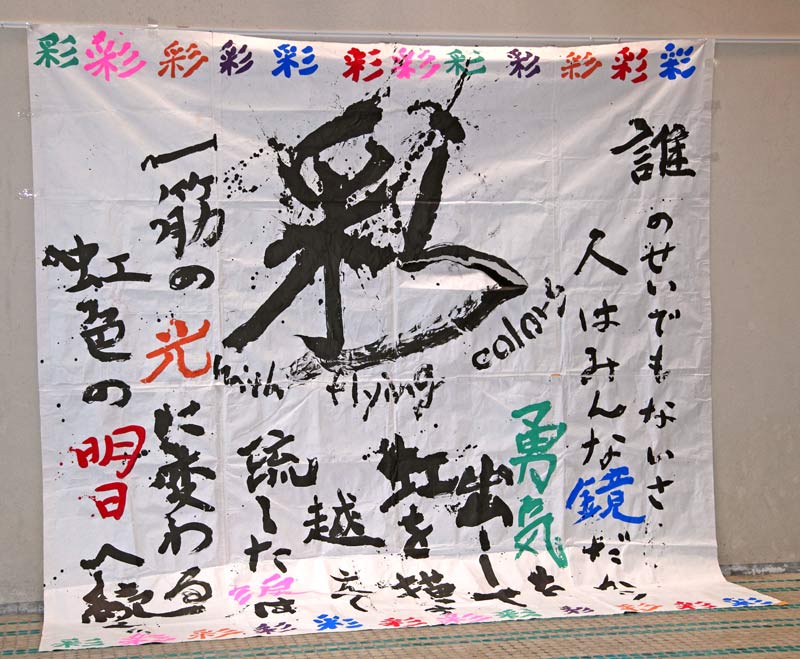 彩彩彩彩彩彩彩彩彩彩彩彩
誰のせいでもないさ、
人はみんな鏡だから
彩
with flying colors
勇気を
出して
虹を描き
越えて
流した涙は
一筋の光に変わる
虹色の明日へ続く
彩彩彩彩彩彩彩彩彩彩彩彩